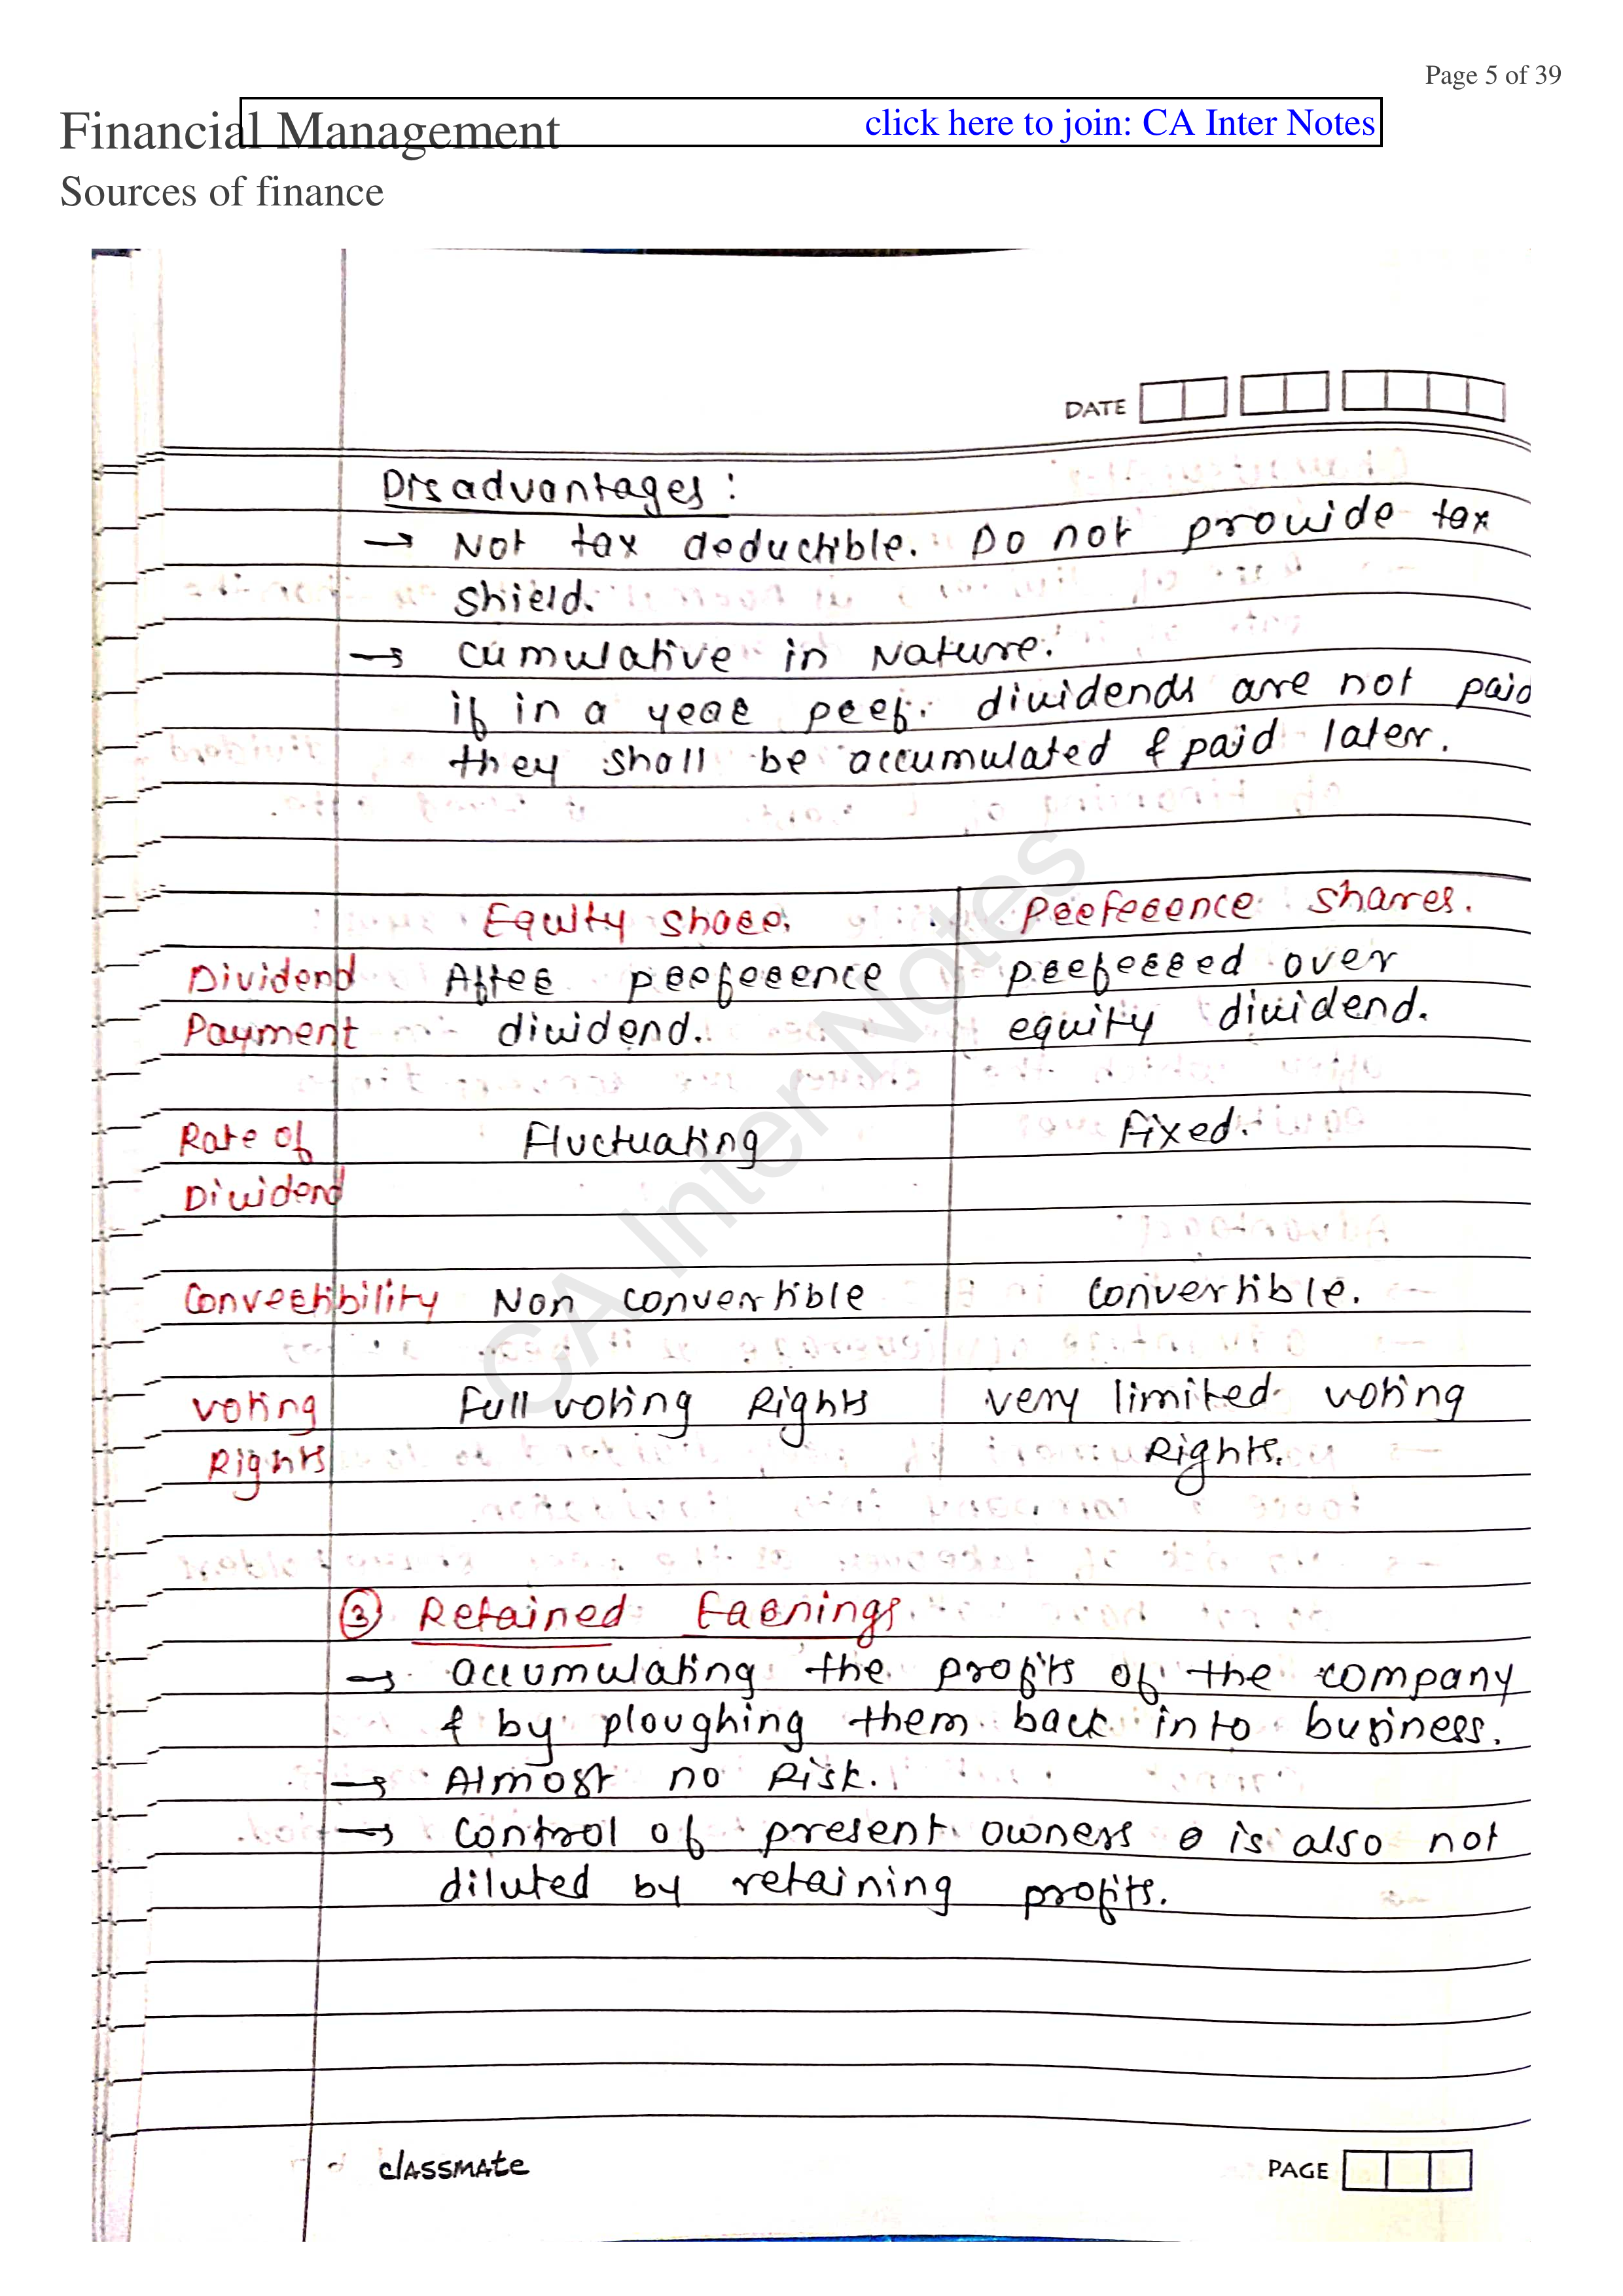 Page 5 of 39
Financial Management
click here to join: CA Inter Notes
Sources of finance
DATE
Disadvantages :
→ Not tax deductible. Do not provide tax
shield.
→ cumulative in Nature.
if in a year pref. dividends are not paid
they shall be accumulated & paid later.
Equity share. Preference shares.
Dividend After preference preferred over
Payment dividend. equity dividend.
Rate of Fluctuating Fixed.
Dividend
Convertibility Non convertible convertible.
voting Full voting Rights very limited voting
Rights Rights.
③ Retained Earnings
→ accumulating the profits of the company
& by ploughing them back into business.
→ Almost no Risk.
→ Control of present owners is also not
diluted by retaining profits.
classmate
PAGE
CA Inter Notes